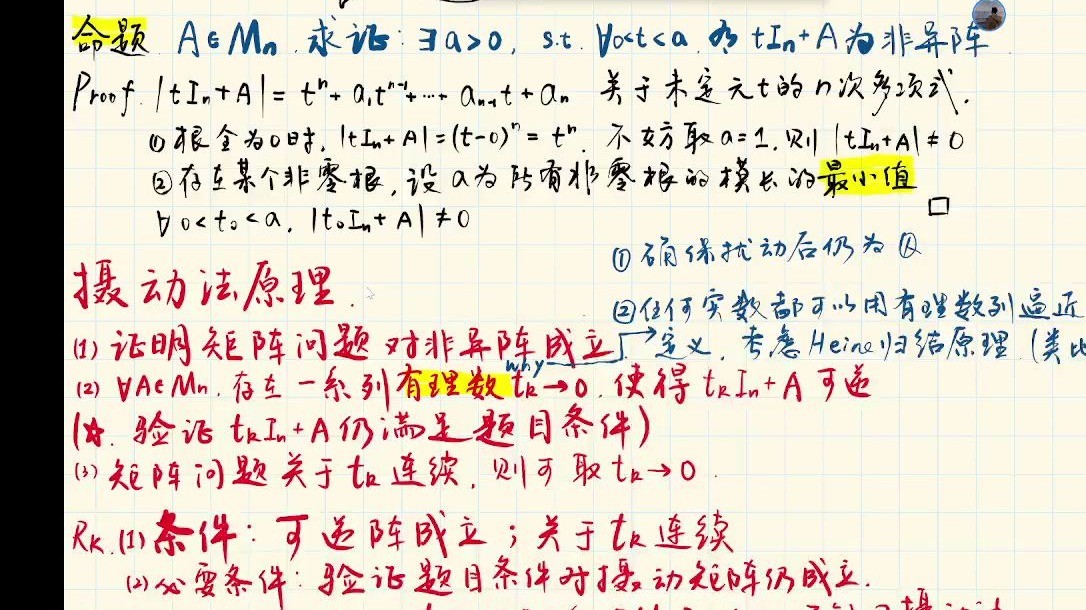 命题. A∈Mn. 求证: ∃a>0, s.t. ∀0<t<a, 有 tIn+A为非异阵
Proof. |tIn+A| = tⁿ+a₁tⁿ⁻¹+…+aₙ₋₁t+aₙ 关于未定元t的n次多项式.
①根全为0时, |tIn+A|=(t-0)ⁿ=tⁿ. 不妨取a=1, 则 |tIn+A|≠0
②存在某个非零根, 设a为所有非零根的模长的最小值
∀0<t₀<a, |t₀In+A|≠0 □
①确保扰动后仍为Q
摄动法原理.
②任何实数都可以用有理数列逼近
(1) 证明矩阵问题对非异阵成立
→定义, 考虑Heine归结原理 (类比
why
(2) ∀A∈Mn, 存在一系列有理数tk→0, 使得tkIn+A可逆
(☆. 验证tkIn+A仍满足题目条件)
(3) 矩阵问题关于tk连续, 则可取tk→0.
Rk. (1) 条件: 可逆阵成立; 关于tk连续
(2) 必要条件: 验证题目条件对摄动矩阵仍成立.